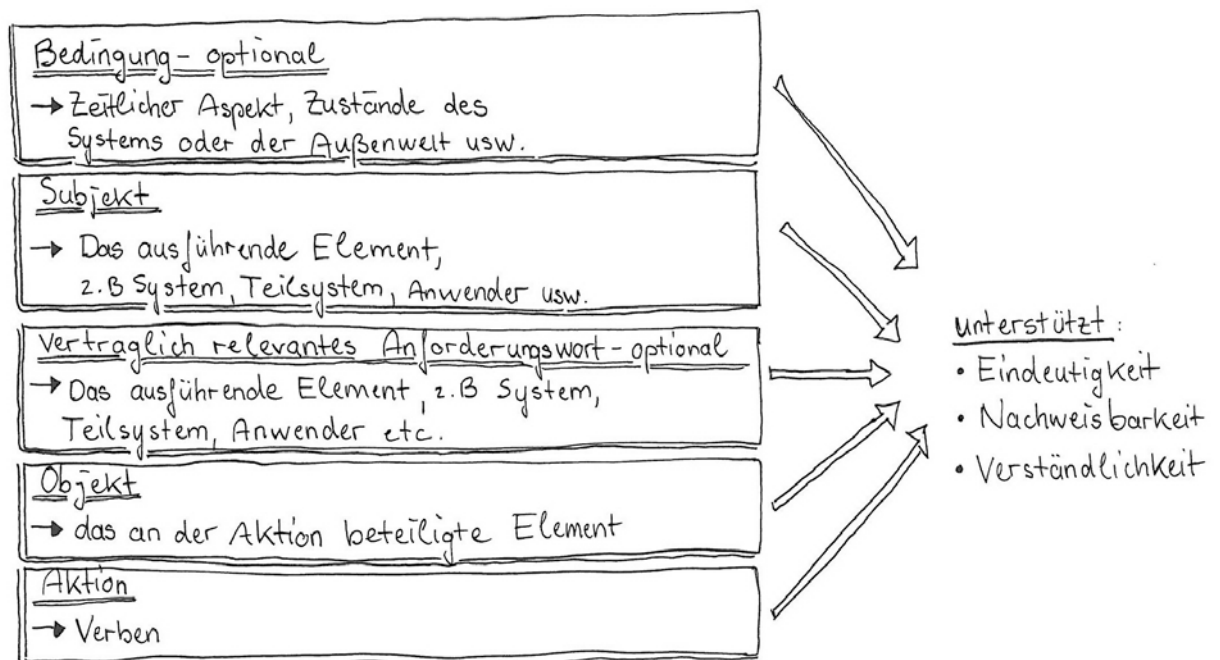 Bedingung - optional
→ Zeitlicher Aspekt, Zustände des
Systems oder der Außenwelt usw.
Subjekt
→ Das ausführende Element,
z.B System, Teilsystem, Anwender usw.
Vertraglich relevantes Anforderungswort - optional
→ Das ausführende Element, z.B System,
Teilsystem, Anwender etc.
Objekt
→ das an der Aktion beteiligte Element
Aktion
→ Verben
unterstützt:
• Eindeutigkeit
• Nachweisbarkeit
• Verständlichkeit